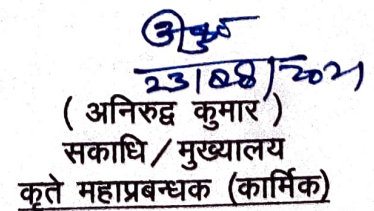 23/08/2021
( अनिरुद्व कुमार )
सकाधि / मुख्यालय
कृते महाप्रबन्धक (कार्मिक)